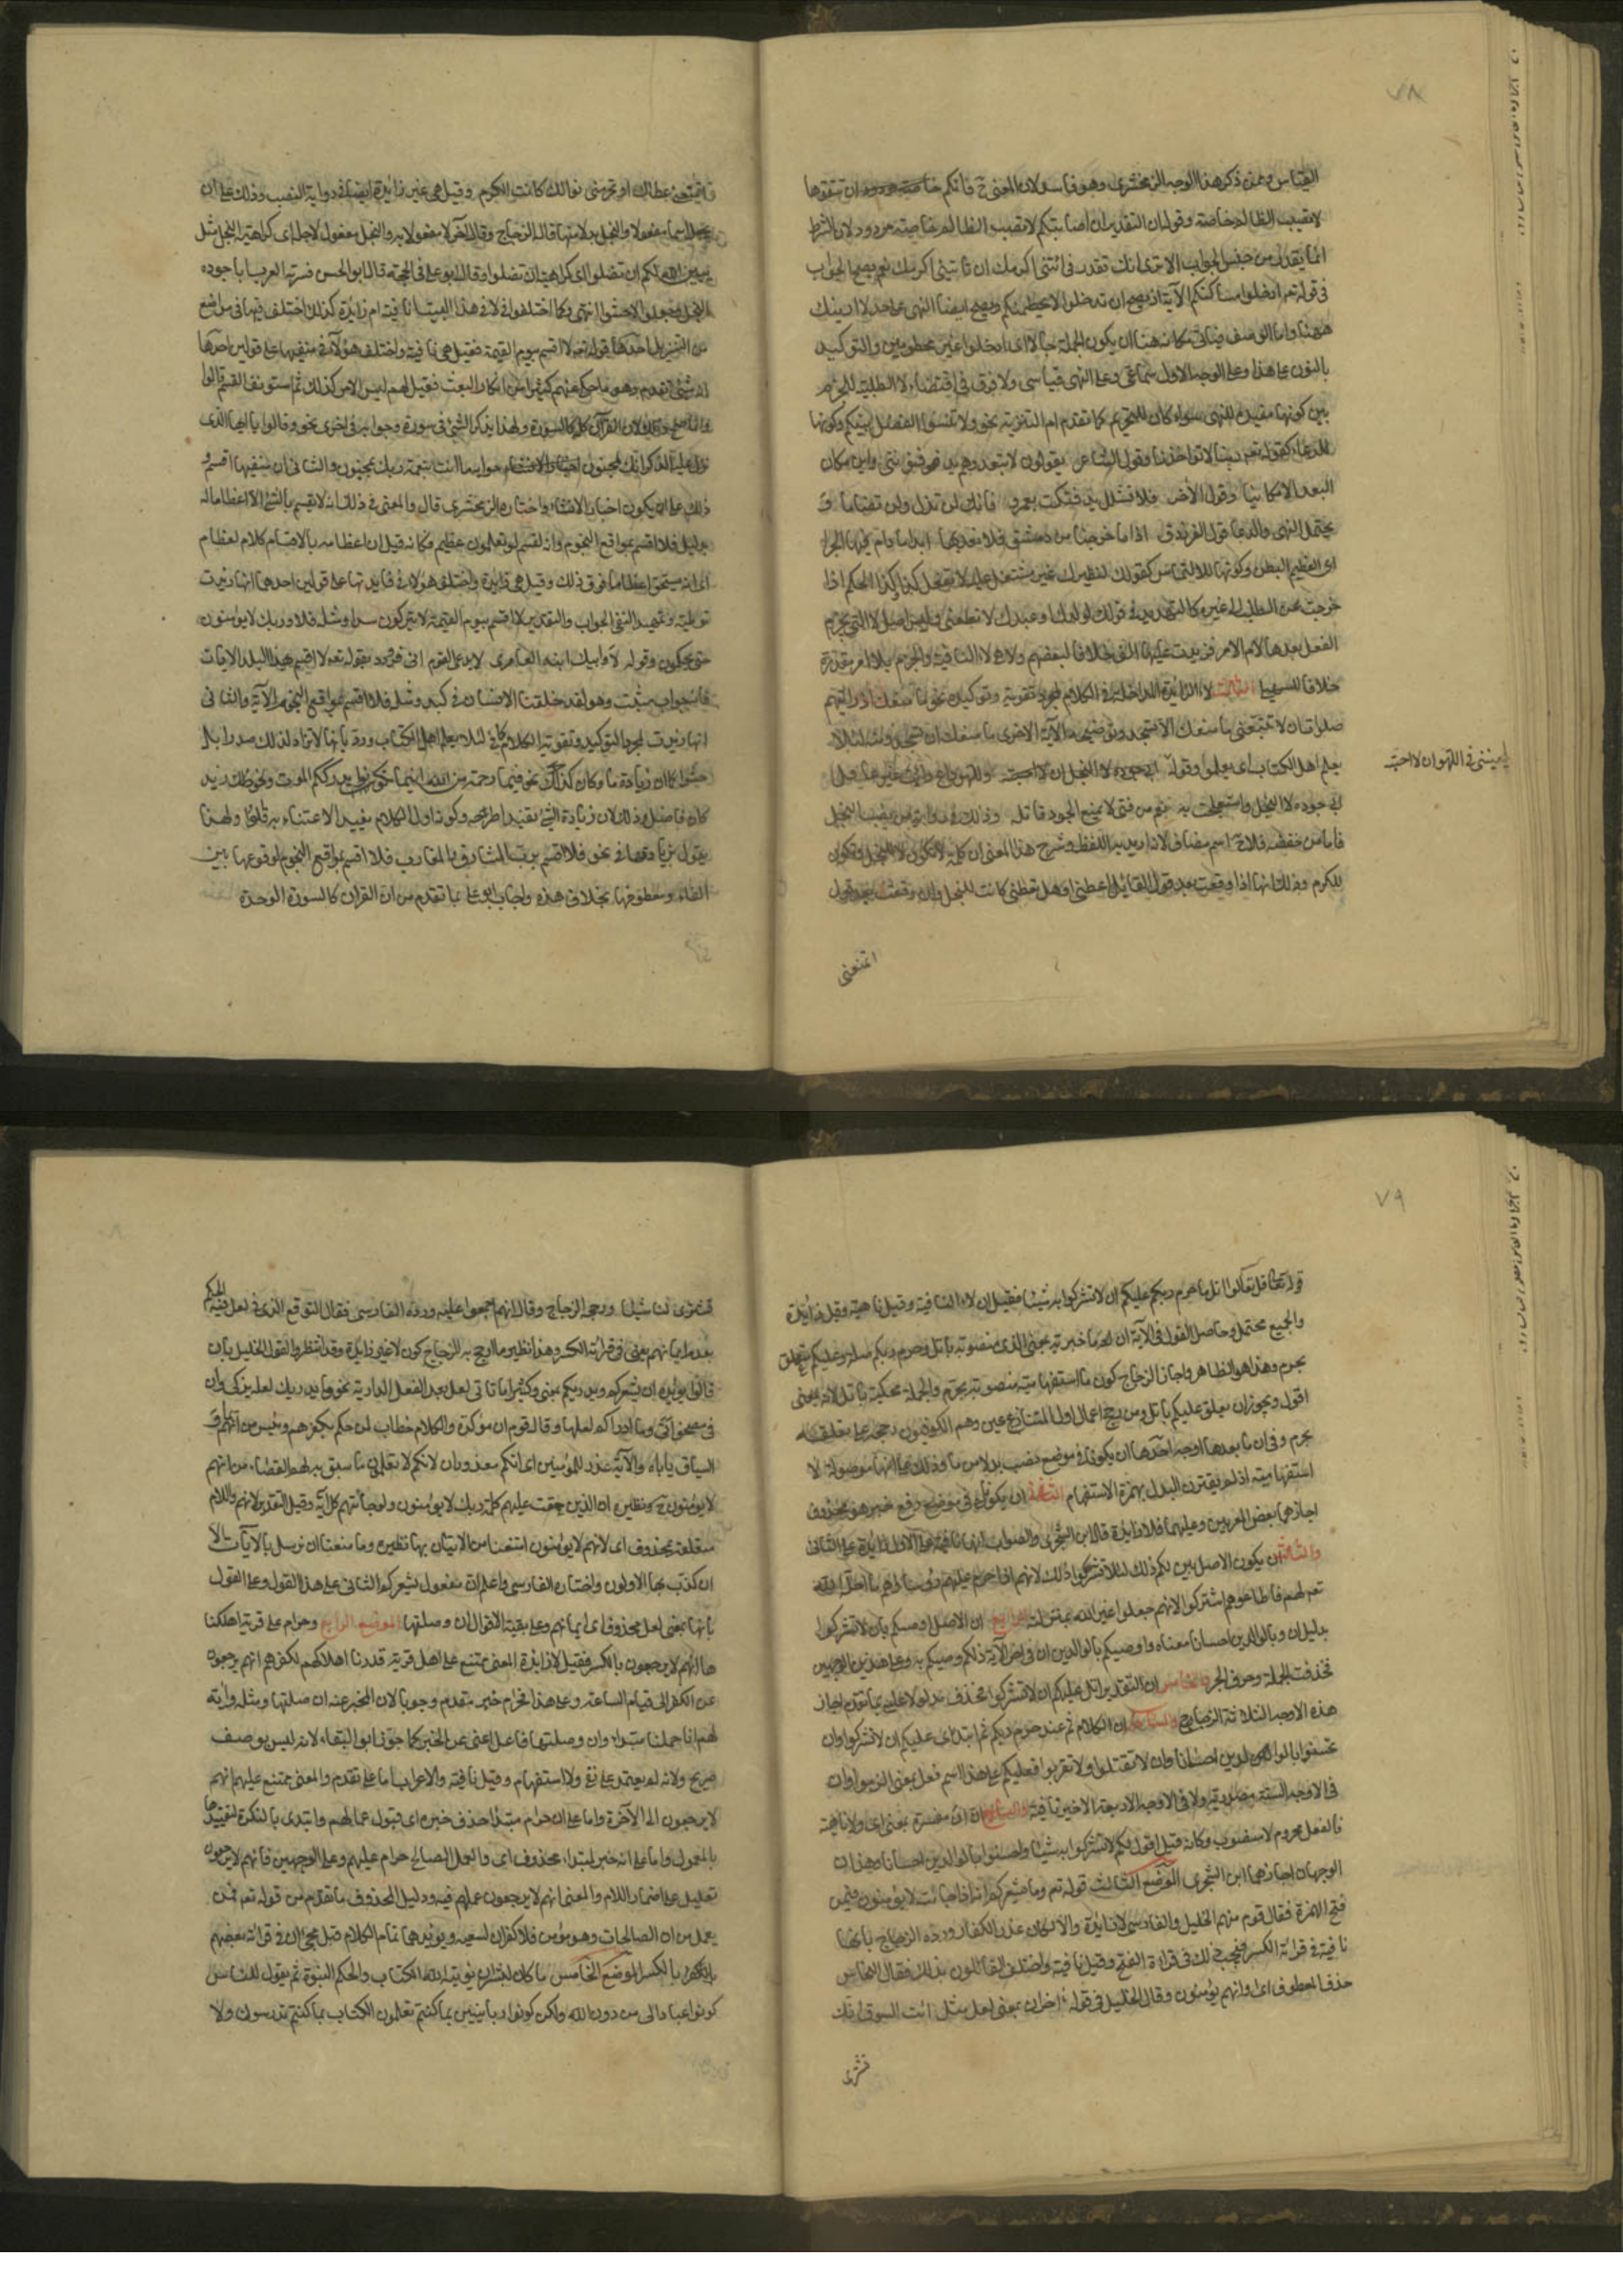 ٧٨
القياس وممن ذكر هذا الوجه الزمخشرى وهو فاسد لان المعنى ح فانكم خاصة ان تتقوها
لا تصيب الظالم خاصة وقوله ان التقدير ان اصابتكم لا تصيب الظالم خاصة مردود لان الشرط
انما يقدر من جنس الجواب الا ترى انك تقدر فى ائتنى اكرمك ان تأتينى اكرمك نعم يصح الجواب
فى قوله تعم ادخلوا مساكنكم الآية اذ يصح ان تدخلوا لا يحطمنكم ويصح ايضا النهى على حد لا ارينك
ههنا واما الوصف فيأتى مكانه هنا ان يكون الجملة حالا اى ادخلوا غير محطومين والتوكيد
بالنون على هذا وعلى الوجه الاول سماعى وعلى النهى قياسى ولا فرق فى اقتضاء لا الطلبية للجزم
بين كونها مفيدة للنهى سواء كان للتحريم كما تقدم ام للتنزيه نحو ولا تنسوا الفضل بينكم وكونها
للدعاء كقوله تعم ربنا لا تؤاخذنا وقول الشاعر يقولون لا تبعد وهم يدفنوننى واين مكان
البعد الا مكانيا وقول الآخر فلا تشلل يد فتكت بعمرو فانك لن تذل ولن تضاما و
يحتمل النهى والدعا قول الفرزدق اذا ما خرجنا من دمشق فلا نعد لها ابدا ما دام فيها الجرا
اى العظيم البطن وكونها للالتماس كقولك لنظيرك غير مستعل عليه لا تفعل كذا وكذا الحكم اذا
خرجت عن الطلب الى غيره كالتهديد فى قولك لولدك او عبدك لا تطعنى وليس اصل لا التى يجزم
الفعل بعدها لام الامر فزيدت عليها الف خلافا لبعضهم ولا هى لا النافية والجزم بلام الامر مقدرة
خلافا للسهيلى الثالث لا الزائدة الداخلة فى الكلام لمجرد تقويته وتوكيده نحو ما منعك اذ رايتهم
ضلوا ان لا تتبعنى ما منعك الا تسجد ويوضحه الآية الاخرى ما منعك ان تسجد ومنه لئلا
يعلم اهل الكتاب اى يعلموا وقوله
يلحيننى فى اللهو ان لا احبه
ابى جوده لا البخل واستعجلت به نعم من فتى لا يمنع الجود قاتله وذلك فى رواية من نصب البخل
فاما من خفض فلا ح اسم مضاف لانه اريد به اللفظ وشرح هذا المعنى ان كلمة لا تكون للبخل وتكون
للكرم وذلك انها اذا وقعت بعد قول القائل اعطنى او هل تعطنى كانت للبخل وان وقعت بعد قول
اتمنعنى
اتمنعنى عطاك او تحرمنى نوالك كانت للكرم وقيل هى غير زائدة ايضا فى رواية النصب وذلك على ان
تجعل اسما مفعولا والبخل بدلا منها قاله الزجاج وقال آخر لا مفعول به والبخل مفعول لاجله اى كراهية البخل مثل
يبين الله لكم ان تضلوا اى كراهية ان تضلوا وقال ابو على فى الحجة قال ابو الحسن فسرته العرب ابا جوده
البخل وجعلوا لا حشوا انتهى وكما اختلفوا فى لا فى هذا البيت انافية ام زائدة كذلك اختلف فيها فى مواضع
من التنزيل احدها قوله تعم لا اقسم بيوم القيمة فقيل هى نافية واختلف هؤلاء فى منفيها على قولين احدهما
انه شئ تقدم وهو ما حكى عنهم كثيرا من انكار البعث فقيل لهم ليس الامر كذلك ثم استونف القسم قالوا
وانما صح ذلك لان القرآن كله كالسورة ولهذا يذكر الشئ فى سورة وجوابه فى اخرى نحو وقالوا يا ايها الذى
نزل عليه الذكر انك لمجنون جوابه ما انت بنعمة ربك بمجنون والثانى ان منفيها اقسم و
ذلك على ان يكون اخبارا لا انشاء واختاره الزمخشرى قال والمعنى فى ذلك انه لا يقسم بالشئ الا اعظاما له
بدليل فلا اقسم بمواقع النجوم وانه لقسم لو تعلمون عظيم فكانه قيل ان اعظامه بالاقسام كلا اعظام
اى انه يستحق اعظاما فوق ذلك وقيل هى زائدة واختلف هؤلاء فى فايدتها على قولين احدهما انها زيدت
توطئة وتمهيدا لنفى الجواب والتقدير لا اقسم بيوم القيمة لا يتركون سدى ومثله فلا وربك لا يؤمنون
حتى يحكموك وقوله لا وابيك ابنة العامرى لا يدعى القوم انى افر ورد بقوله تعم لا اقسم بهذا البلد الآيات
فان جوابه مثبت وهو لقد خلقنا الانسان فى كبد ومثله فلا اقسم بمواقع النجوم الآية والثانى
انها زيدت لمجرد التوكيد وتقوية الكلام كما فى لئلا يعلم اهل الكتاب ورد بانها لا تزاد لذلك صدرا بل
حشوا كما ان زيادة ما وكان كذلك نحو فبما رحمة من الله اينما تكونوا يدرككم الموت ونحو زيد
كان فاضل وذلك لان زيادة الشئ تفيد اطراحه وكونه اول الكلام يفيد الاعتناء به قالوا ولهذا
نقول بزيادتها فى نحو فلا اقسم برب المشارق والمغارب فلا اقسم بمواقع النجوم لوقوعها بين
الفاء ومعطوفها بخلاف هذه واجاب ابو على بما تقدم من ان القرآن كالسورة الوحدة
٧٩
قوله تعالى قل تعالوا اتل ما حرم ربكم عليكم ان لا تشركوا به شيئا فقيل ان لا النافية وقيل ناهية وقيل زائدة
والجميع محتمل وحاصل القول فى الآية ان ما خبرية بمعنى الذى منصوبة باتل وحرم ربكم صلة وعليكم متعلق
بحرم وهذا هو الظاهر واجاز الزجاج كون ما استفهامية منصوبة بحرم والجملة محكية باتل لانه بمعنى
اقول ويجوز ان يعلق عليكم باتل ومن رجح اعمال اول المتنازعين وهم الكوفيون رجحه على تعلقه
بحرم وفى ان وما بعدها اوجه احدها ان يكونا فى موضع نصب بدلا من ما وذلك على انها موصولة لا
استفهامية اذ لم يقترن البدل بهمزة الاستفهام الثانى ان يكونا فى موضع رفع خبرا لهو محذوفا
اجازهما بعض المعربين وعليهما فلا زايدة قاله ابن الشجرى والصواب انها نافية على الاول زايدة على الثانى
والثالث ان يكون الاصل ابين لكم ذلك لئلا تشركوا وذلك لانهم اذا حرم عليهم رؤساؤهم ما احل الله
تعم لهم فاطاعوهم اشركوا لانهم جعلوا غير الله بمنزلته الرابع ان الاصل اوصيكم بان لا تشركوا
بدليل ان وبالوالدين احسانا معناه واوصيكم بالوالدين ان فى آخر الآية ذلكم وصيكم به وعلى هذين الوجهين
فحذفت الجملة وحرف الجر والخامس ان التقدير اتل عليكم ان لا تشركوا فحذف مدلولا عليه بما تقدم اجاز
هذه الاوجه الثلاثة الزجاج والسادس ان الكلام تم عند حرم ربكم ثم ابتدى عليكم ان لا تشركوا وان
تحسنوا بالوالدين احسانا وان لا تقتلوا ولا تقربوا فعليكم على هذا اسم فعل بمعنى الزموا وان
فى الاوجه الستة مصدرية ولا فى الاوجه الاربعة الاخيرة نافية والسابع ان ان مفسرة بمعنى اى ولا ناهية
فالفعل مجزوم لا منصوب وكانه قيل اقول لكم لا تشركوا به شيئا واحسنوا بالوالدين احسانا وهذان
الوجهان اجازهما ابن الشجرى الموضع الثالث قوله تعم وما يشعركم انها اذا جائت لا يؤمنون فيمن
فتح الهمزة فقال قوم منهم الخليل والفارسى لا زايدة والا لكان عذرا للكفار ورده الزجاج بانها
نافية فى قرائة الكسر فيجب ذلك فى قراءة الفتح وقيل نافية واختلف القائلون بذلك فقال النحاس
حذف المعطوف اى او انهم يؤمنون وقال الخليل فى قوله آخر ان بمعنى لعل مثل ائت السوق انك
تشترى
تشترى لنا شيئا ورجحه الزجاج وقال انهم اجمعوا عليه ورده الفارسى فقال التوقع الذى فى لعل ينافيه الحكم
بعدم ايمانهم يعنى فى قرائة الكسر وهذا نظير ما رجح به الزجاج كون لا غير زايدة وقد انتصروا لقول الخليل بان
قالوا يؤيده ان يشعركم ويدريكم بمعنى وكثيرا ما تاتى لعل بعد الفعل الدراية نحو وما يدريك لعله يزكى وان
فى مصحف ابى وما ادراكم لعلها وقال قوم ان مؤكدة والكلام خطاب لمن حكم بكفرهم ويئس من ايمانهم و
السياق ياباه والآية عذر للمؤمنين اى انكم معذورون لانكم لا تعلمون ما سبق به لهم القضاء من انهم
لا يؤمنون ح ونظيره ان الذين حقت عليهم كلمة ربك لا يؤمنون ولو جائتهم كل آية وقيل التقدير لانهم واللام
متعلقة بمحذوف اى لانهم لا يؤمنون امتنعنا من الاتيان بها ونظيره وما منعنا ان نرسل بالآيات الا
ان كذب بها الاولون واختاره الفارسى واعلم ان مفعول يشعركم الثانى على هذا القول وعلى القول
بانها بمعنى لعل محذوف اى ايمانهم وعلى بقية الاقوال ان وصلتها الموضع الرابع وحرام على قرية اهلكنا
ها انهم لا يرجعون بالكسر فقيل لا زايدة المعنى ممتنع على اهل قرية قدرنا اهلاكهم لكفرهم انهم يرجعون
عن الكفر الى قيام الساعة وعلى هذا فحرام خبر متقدم وجوبا لان المخبر عنه ان صلتها ومثله وآية
لهم انا حملنا مبتدا وان وصلتها فاعل اغنى عن الخبر كما جوز ابو البقاء لانه ليس بوصف
صريح ولانه لم يعتمد على نفى ولا استفهام وقيل نافية والاعراب اما على ما تقدم والمعنى ممتنع عليهم انهم
لا يرجعون الى الآخرة واما على ان حرام مبتدا حذف خبره اى قبول اعمالهم وابتدى بالنكرة لتقييدها
بالمعمول واما على انه خبر لمبتدا محذوف اى والعمل الصالح حرام عليهم وعلى الوجهين فانهم لا يرجعون
تعليل على اضمار اللام والمعنى انهم لا يرجعون عما هم فيه ودليل المحذوف ما تقدم من قوله تعم فمن
يعمل من الصالحات وهو مؤمن فلا كفران لسعيه ويؤيدهما تمام الكلام قبل مجئ ان فى قرائة بعضهم
بالكسر الموضع الخامس ما كان لبشر ان يؤتيه الله الكتاب والحكم والنبوة ثم يقول للناس
كونوا عبادا لى من دون الله ولكن كونوا ربانيين بما كنتم تعلمون الكتاب بما كنتم تدرسون ولا